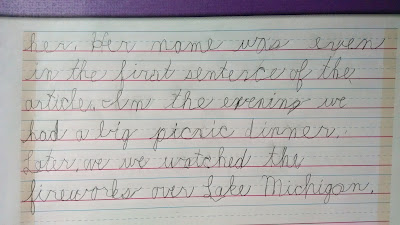 her. Her name was even
in the first sentence of the
article. In the evening we
had a big picnic dinner.
Later, we we watched the
fireworks over Lake Michigan.